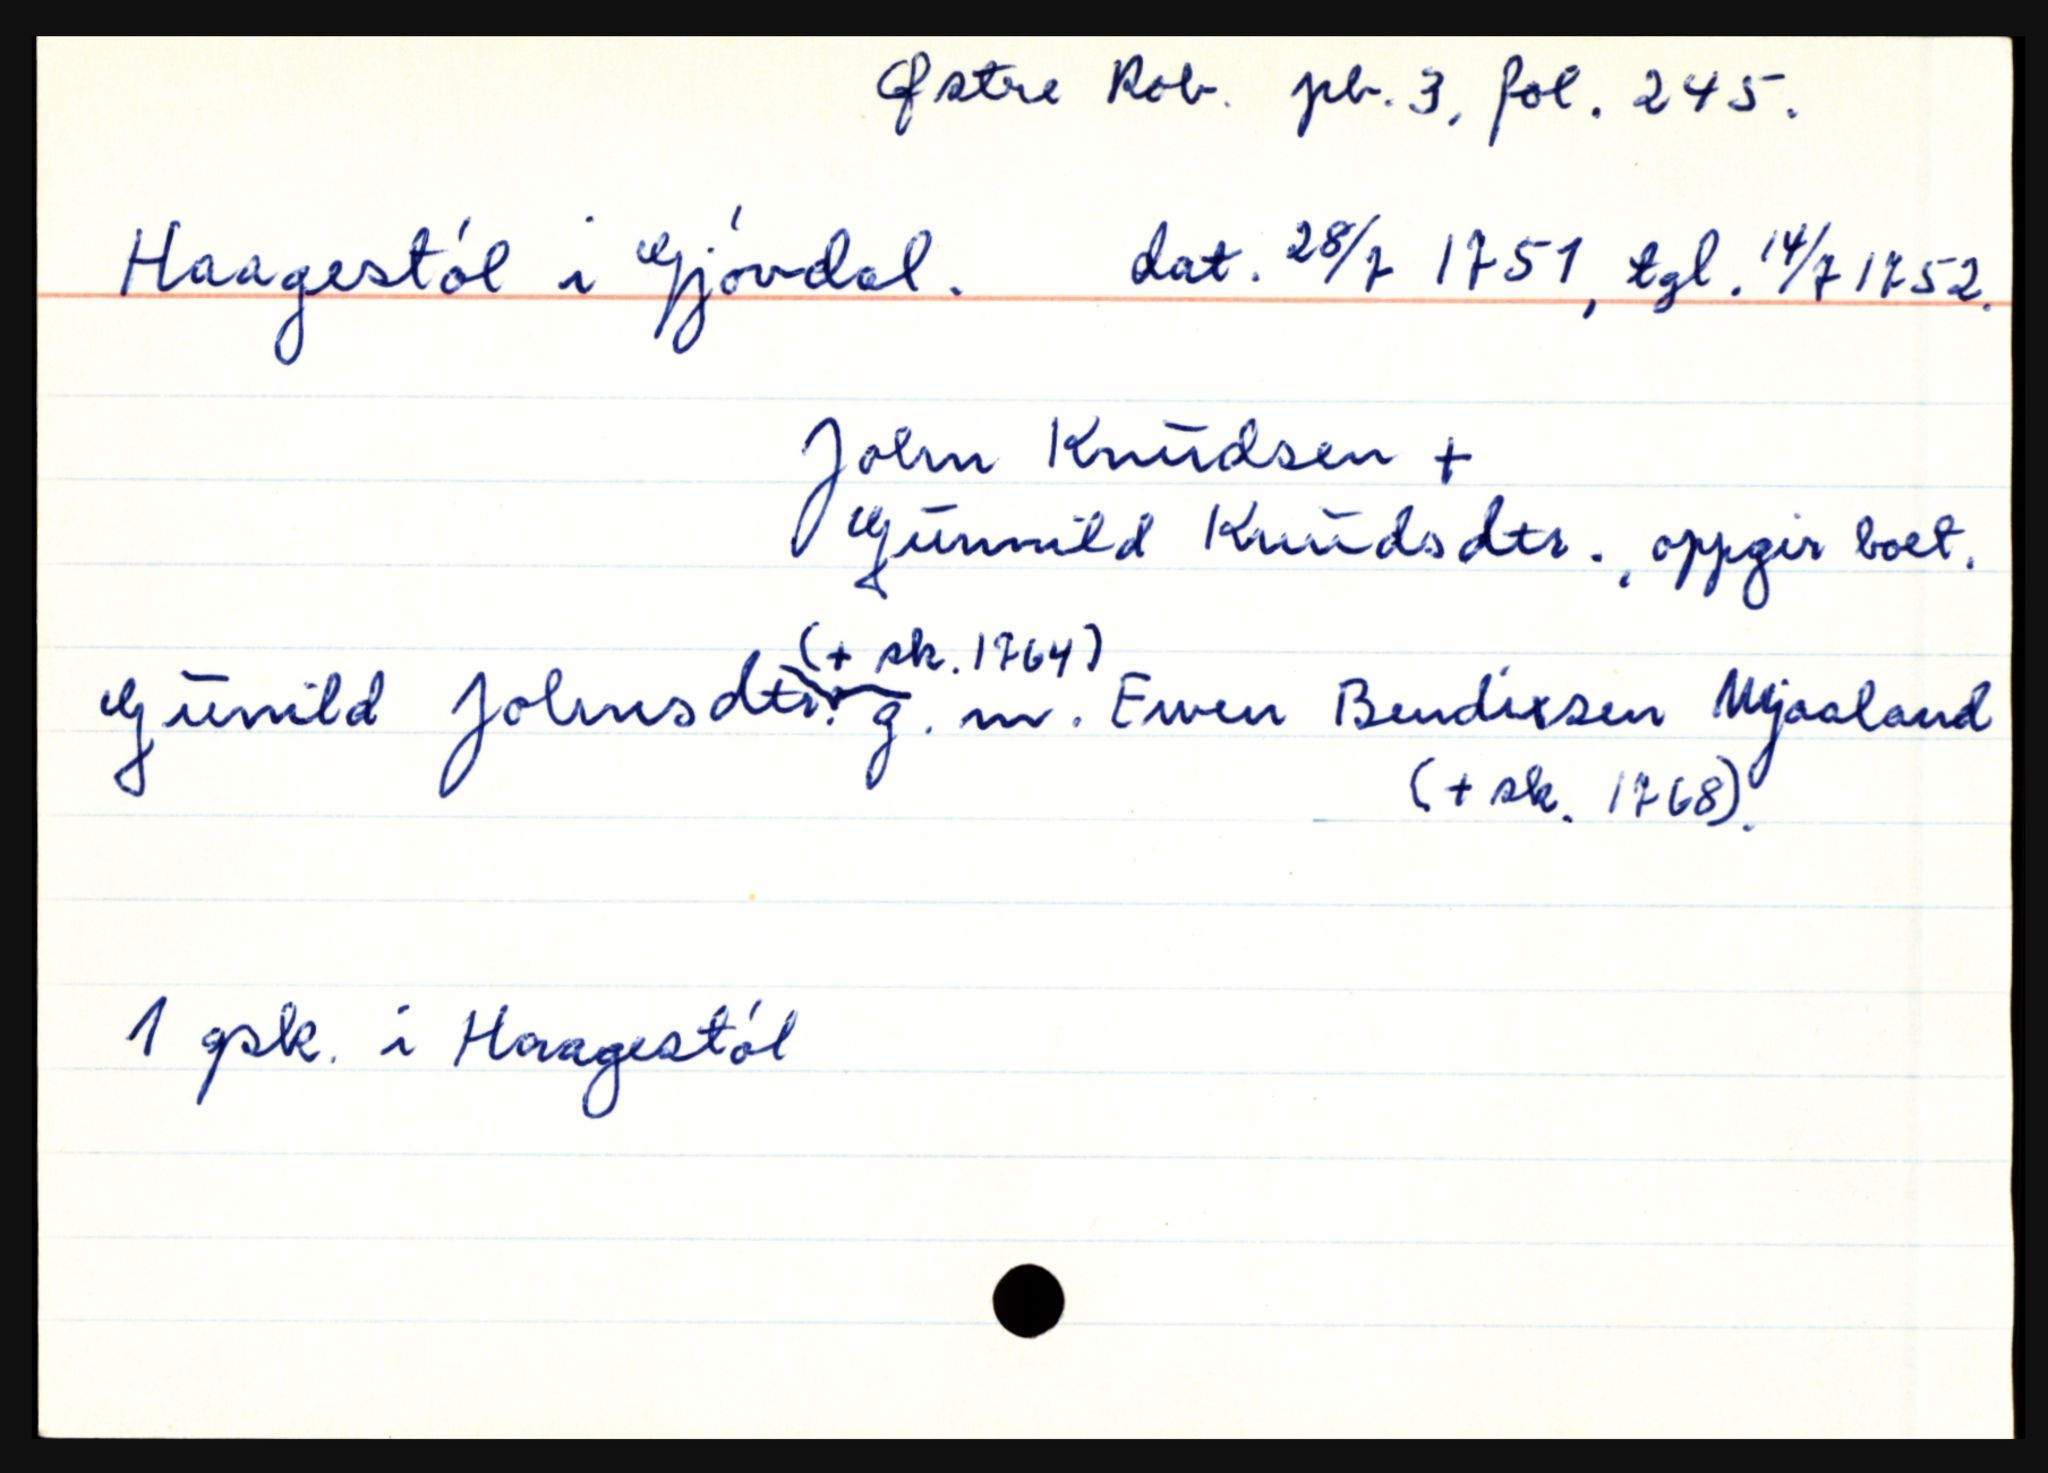 Østre Rob. pb. 3, fol. 245.
Haagestól i Gjóvdal. dat. 28/7 1751, tgl. 14/7 1752.
John Knudsen +
Gunnild Knudsdtr., oppgir boet.
(+ sk. 1764)
Gunild Johnsdtr. g. m. Ewen Bendixsen Mjaaland
(+ sk. 1768).
1 gsk. i Haagestól